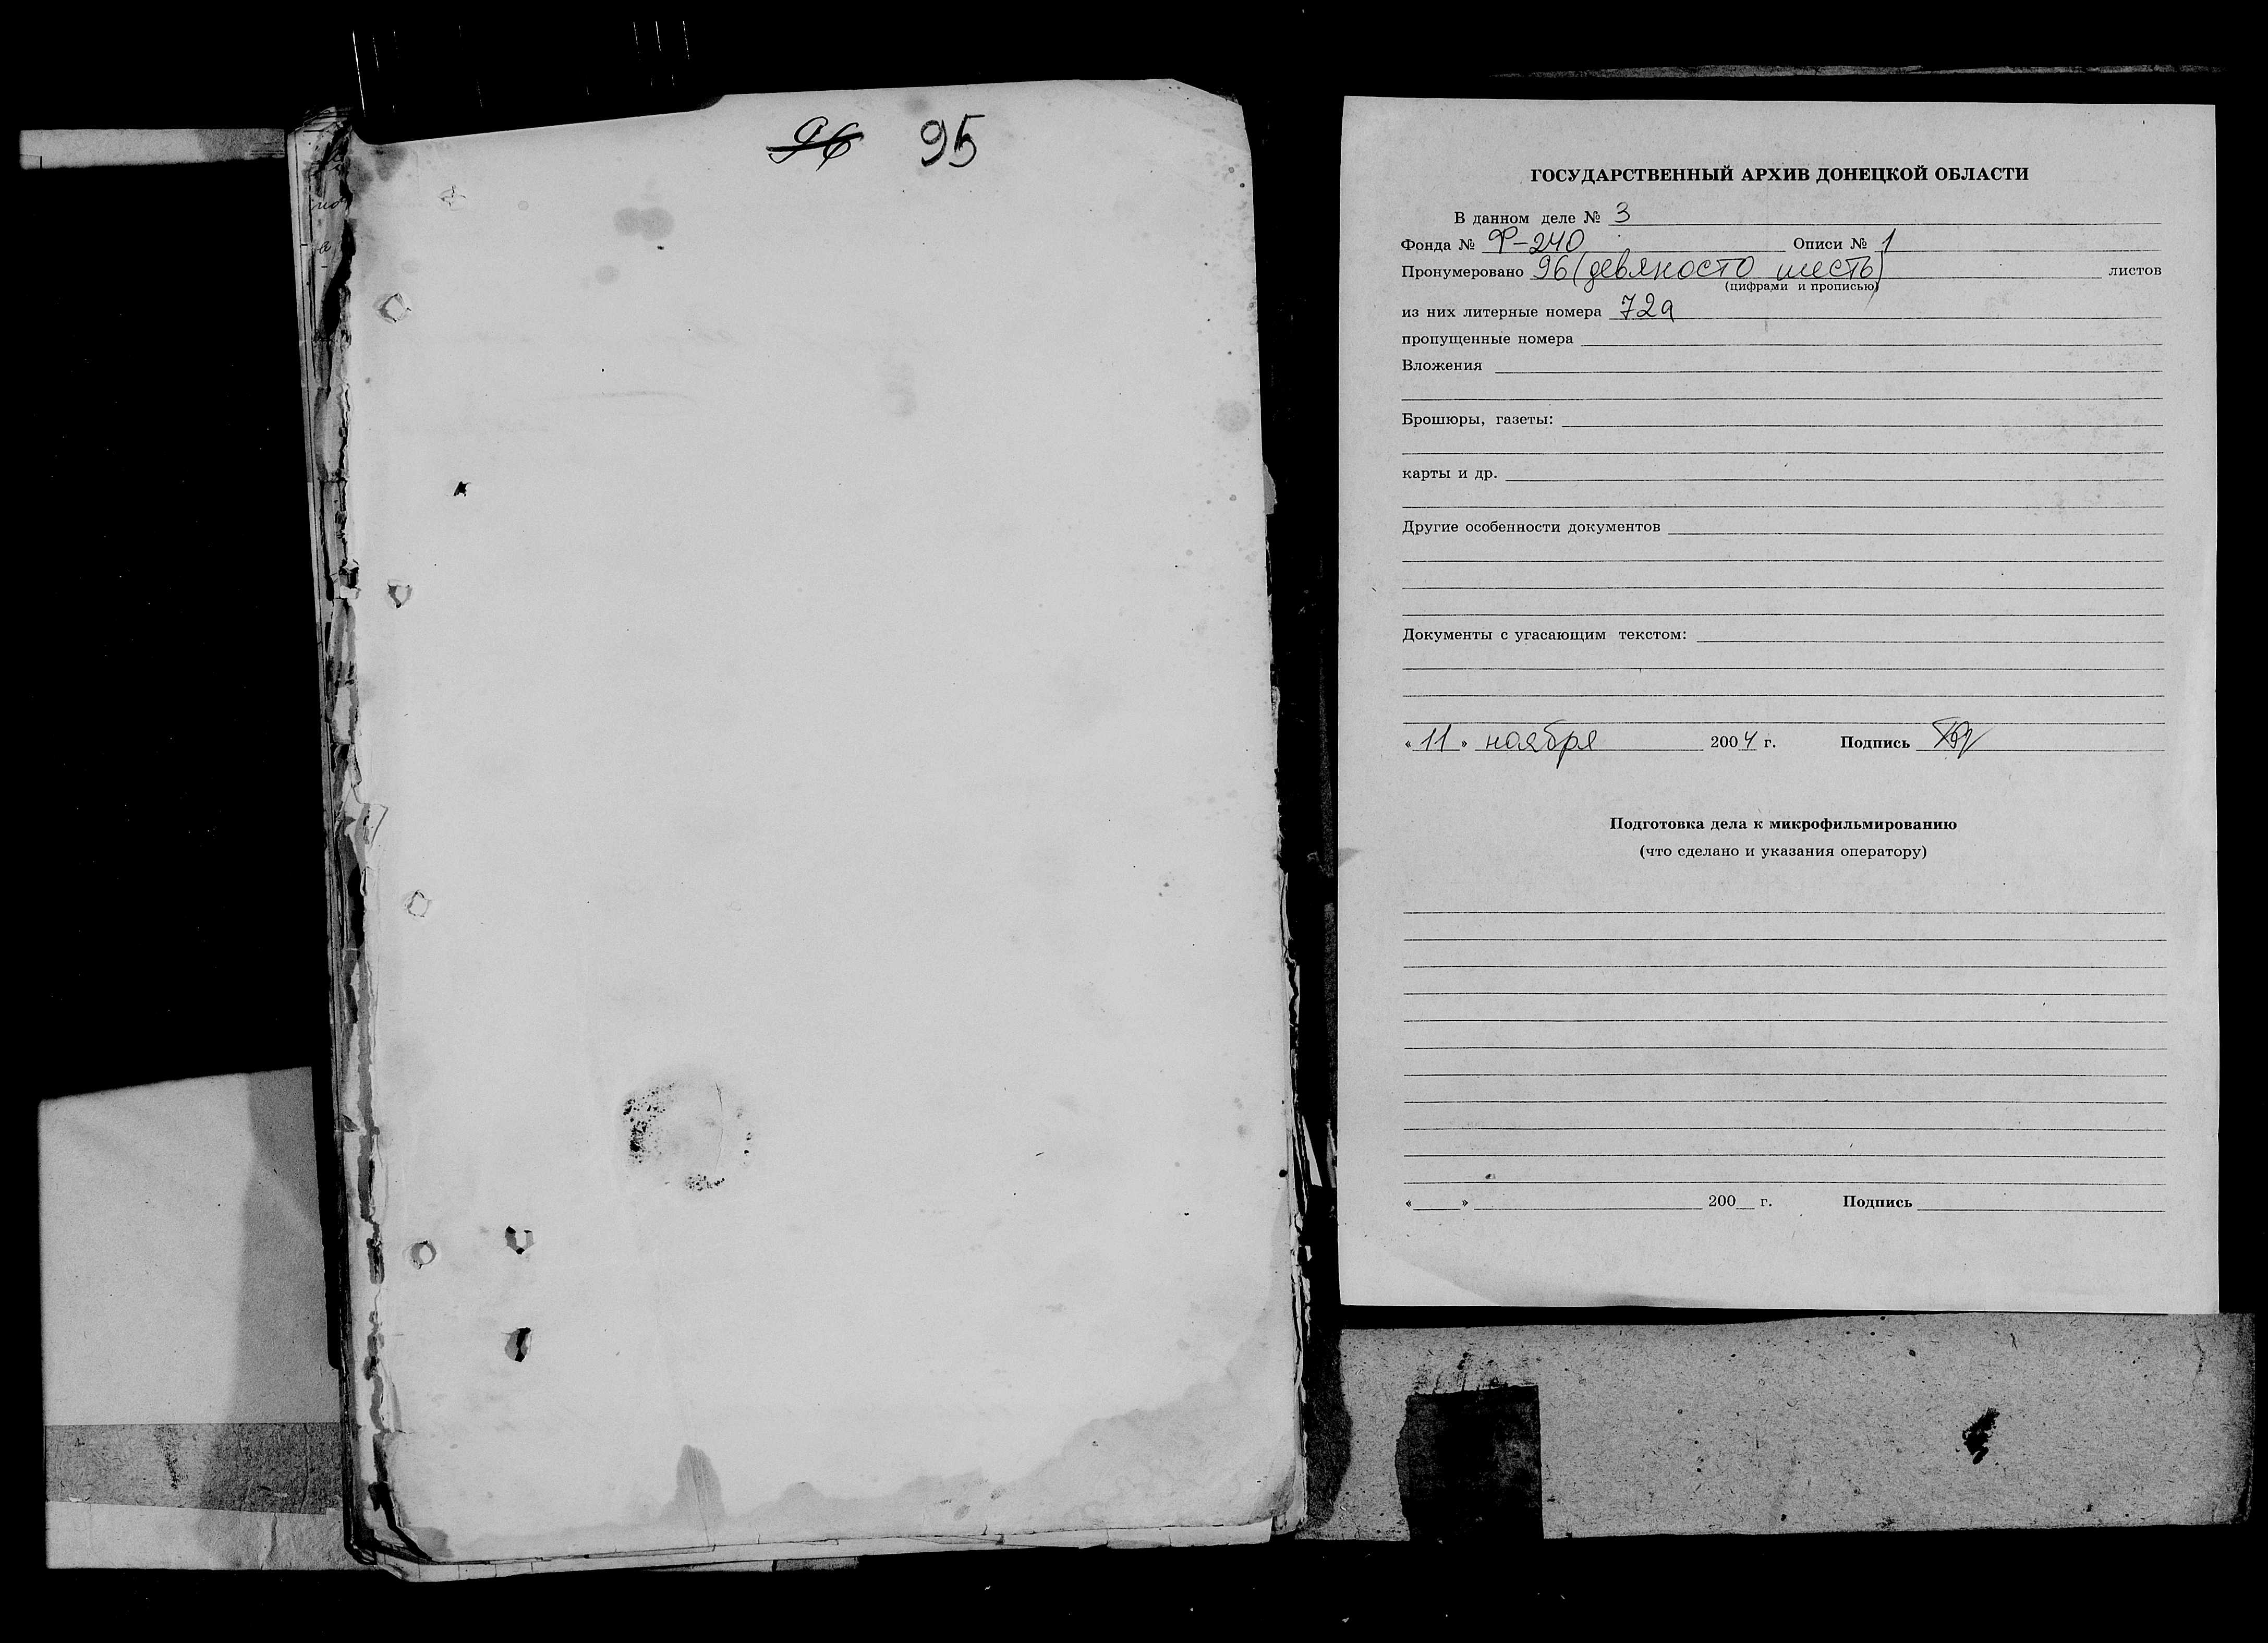 96 95
ГОСУДАРСТВЕННЫЙ АРХИВ ДОНЕЦКОЙ ОБЛАСТИ
В данном деле № 3
Фонда № Ф-240 Описи № 1
Пронумеровано 96 (девяносто шесть) листов
(цифрами и прописью)
из них литерные номера 72а
пропущенные номера
Вложения
Брошюры, газеты:
карты и др.
Другие особенности документов
Документы с угасающим текстом:
« 11 » ноября 2004 г. Подпись
Подготовка дела к микрофильмированию
(что сделано и указания оператору)
« » 200 г. Подпись